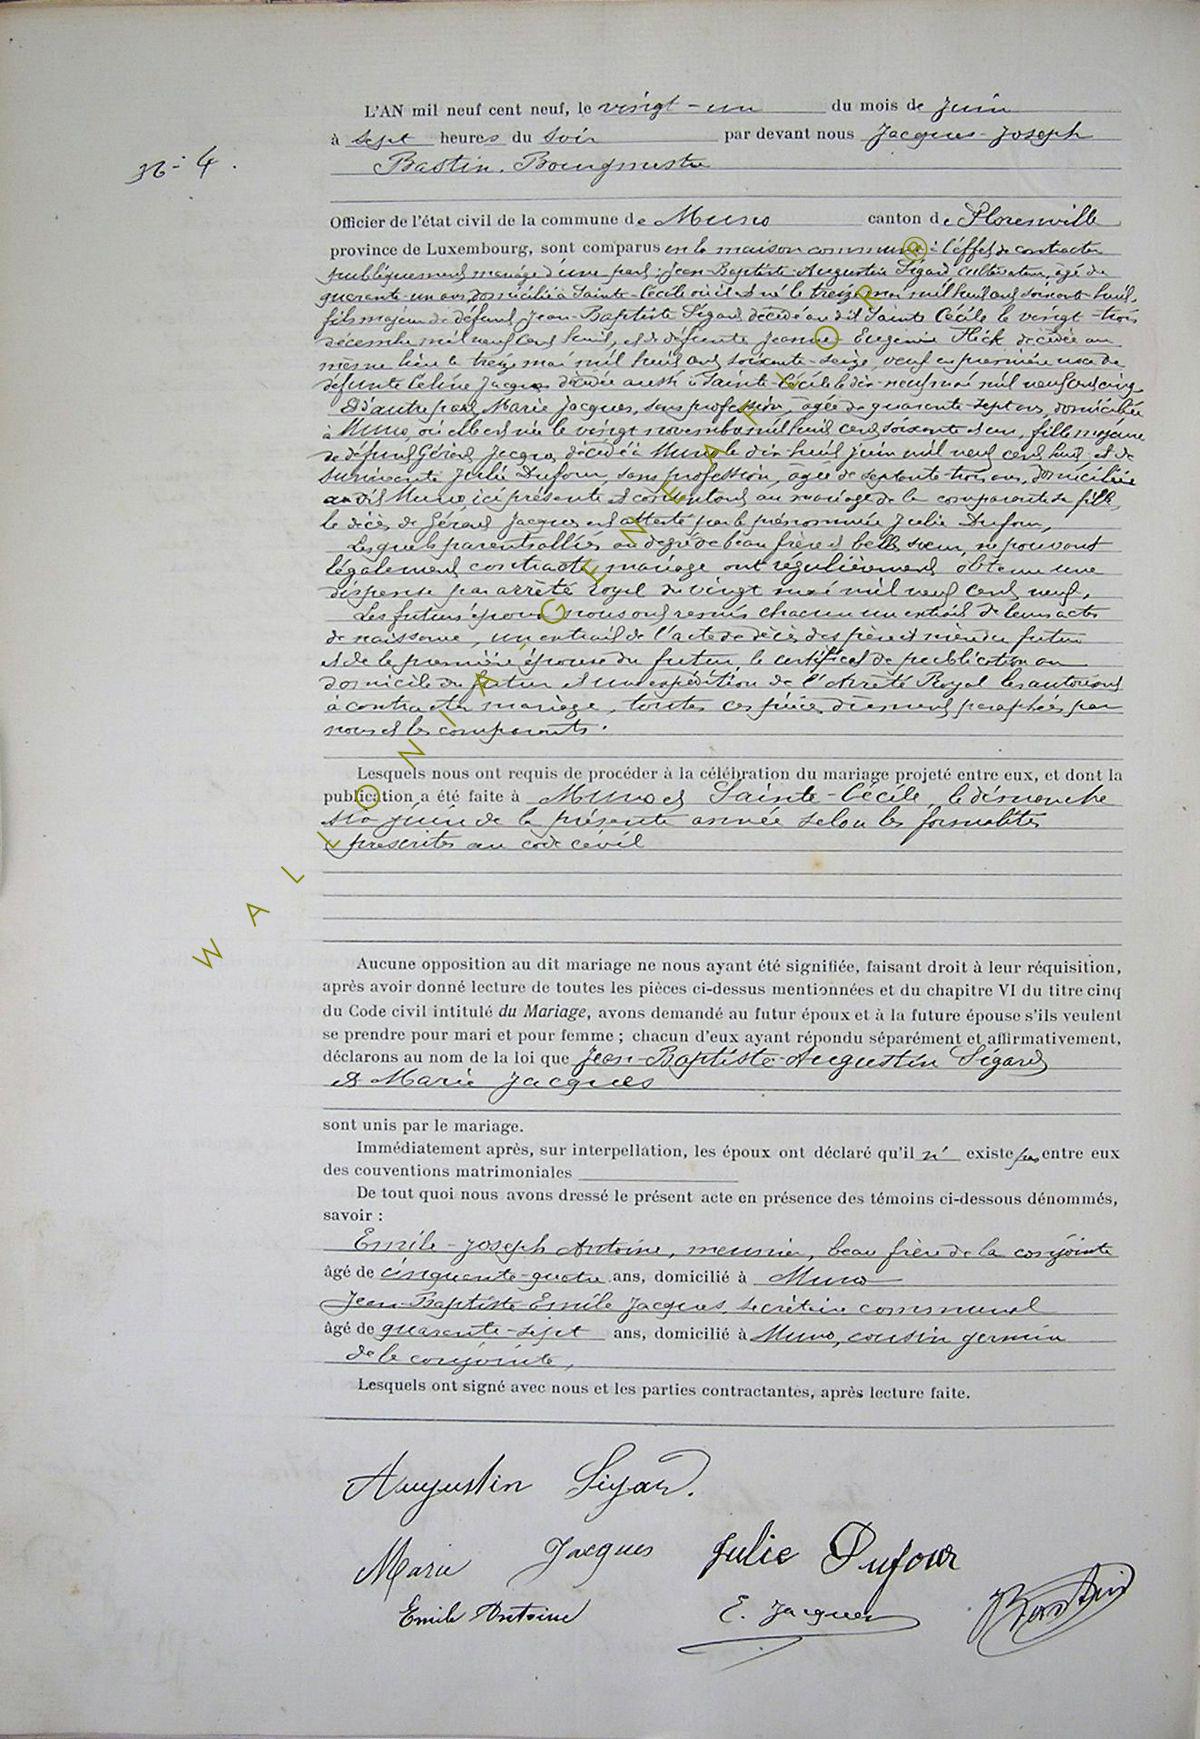 L'AN mil neuf cent neuf, le vingt-un du mois de juin
à sept heures du soir par devant nous Jacques-Joseph
No 4.
Bastin, Bourgmestre
Officier de l'état civil de la commune de Muno canton de Florenville
province de Luxembourg, sont comparus en la maison commune à l'effet de contracter
publiquement mariage d'une part: Jean-Baptiste-Augustin Sigard, cultivateur, âgé de
quarante-un ans, domicilié à Sainte-Cécile où il est né le treize mai mil huit cent soixante-huit,
fils majeur de défunt Jean-Baptiste Sigard décédé au dit Sainte Cécile le vingt-trois
décembre mil neuf cent huit, et de défunte Jeanne-Eugénie Flick décédée au
même lieu le treize mai mil huit cent soixante-seize, veuf en première noce de
défunte Céline Jacques décédée aussi à Sainte-Cécile le dix-neuf mai mil neuf cent cinq
Et d'autre part Marie Jacques, sans profession, âgée de quarante-sept ans, domiciliée
à Muno, où elle est née le vingt novembre mil huit cent soixante et un, fille majeure
de défunt Gérard Jacques décédé à Muno le dix-huit juin mil neuf cent huit et de
survivante Julie Dufour, sans profession, âgée de septante-trois ans, domiciliée
au dit Muno, ici présente et consentant au mariage de la comparante sa fille,
le décès de Gérard Jacques est attesté par la prénommée Julie Dufour,
Lesquels parents alliés au degré de beau frère et belle sœur, ne pouvant
légalement contracter mariage ont régulièrement obtenu une
dispense par arrêté royal du vingt mai mil neuf cent neuf.
Les futurs époux nous ont remis chacun un extrait de leurs actes
de naissance, un extrait de l'acte de décès des père et mère du futur
et de la première épouse du futur, le certificat de publication au
domicile du futur et une expédition de l'Arrêté Royal les autorisant
à contracter mariage, toutes ces pièces dûment paraphées par
nous et les comparants.
Lesquels nous ont requis de procéder à la célébration du mariage projeté entre eux, et dont la
publication a été faite à Muno et Sainte-Cécile, le dimanche
six juin de la présente année selon les formalités
prescrites au code civil
Aucune opposition au dit mariage ne nous ayant été signifiée, faisant droit à leur réquisition,
après avoir donné lecture de toutes les pièces ci-dessus mentionnées et du chapitre VI du titre cinq
du Code civil intitulé du Mariage, avons demandé au futur époux et à la future épouse s'ils veulent
se prendre pour mari et pour femme ; chacun d'eux ayant répondu séparément et affirmativement,
déclarons au nom de la loi que Jean-Baptiste-Augustin Sigard
et Marie Jacques
sont unis par le mariage.
Immédiatement après, sur interpellation, les époux ont déclaré qu'il n' existe pas entre eux
des conventions matrimoniales
De tout quoi nous avons dressé le présent acte en présence des témoins ci-dessous dénommés,
savoir :
Emile-Joseph Antoine, meunier, beau frère de la conjointe
âgé de cinquante-quatre ans, domicilié à Muno
Jean-Baptiste Emile Jacques, secrétaire communal
âgé de quarante-sept ans, domicilié à Muno, cousin germain
de la conjointe,
Lesquels ont signé avec nous et les parties contractantes, après lecture faite.
Augustin Sigard.
Marie Jacques Julie Dufour
Emile Antoine E. Jacques Bastin
WALLONIA GENEA PRO R